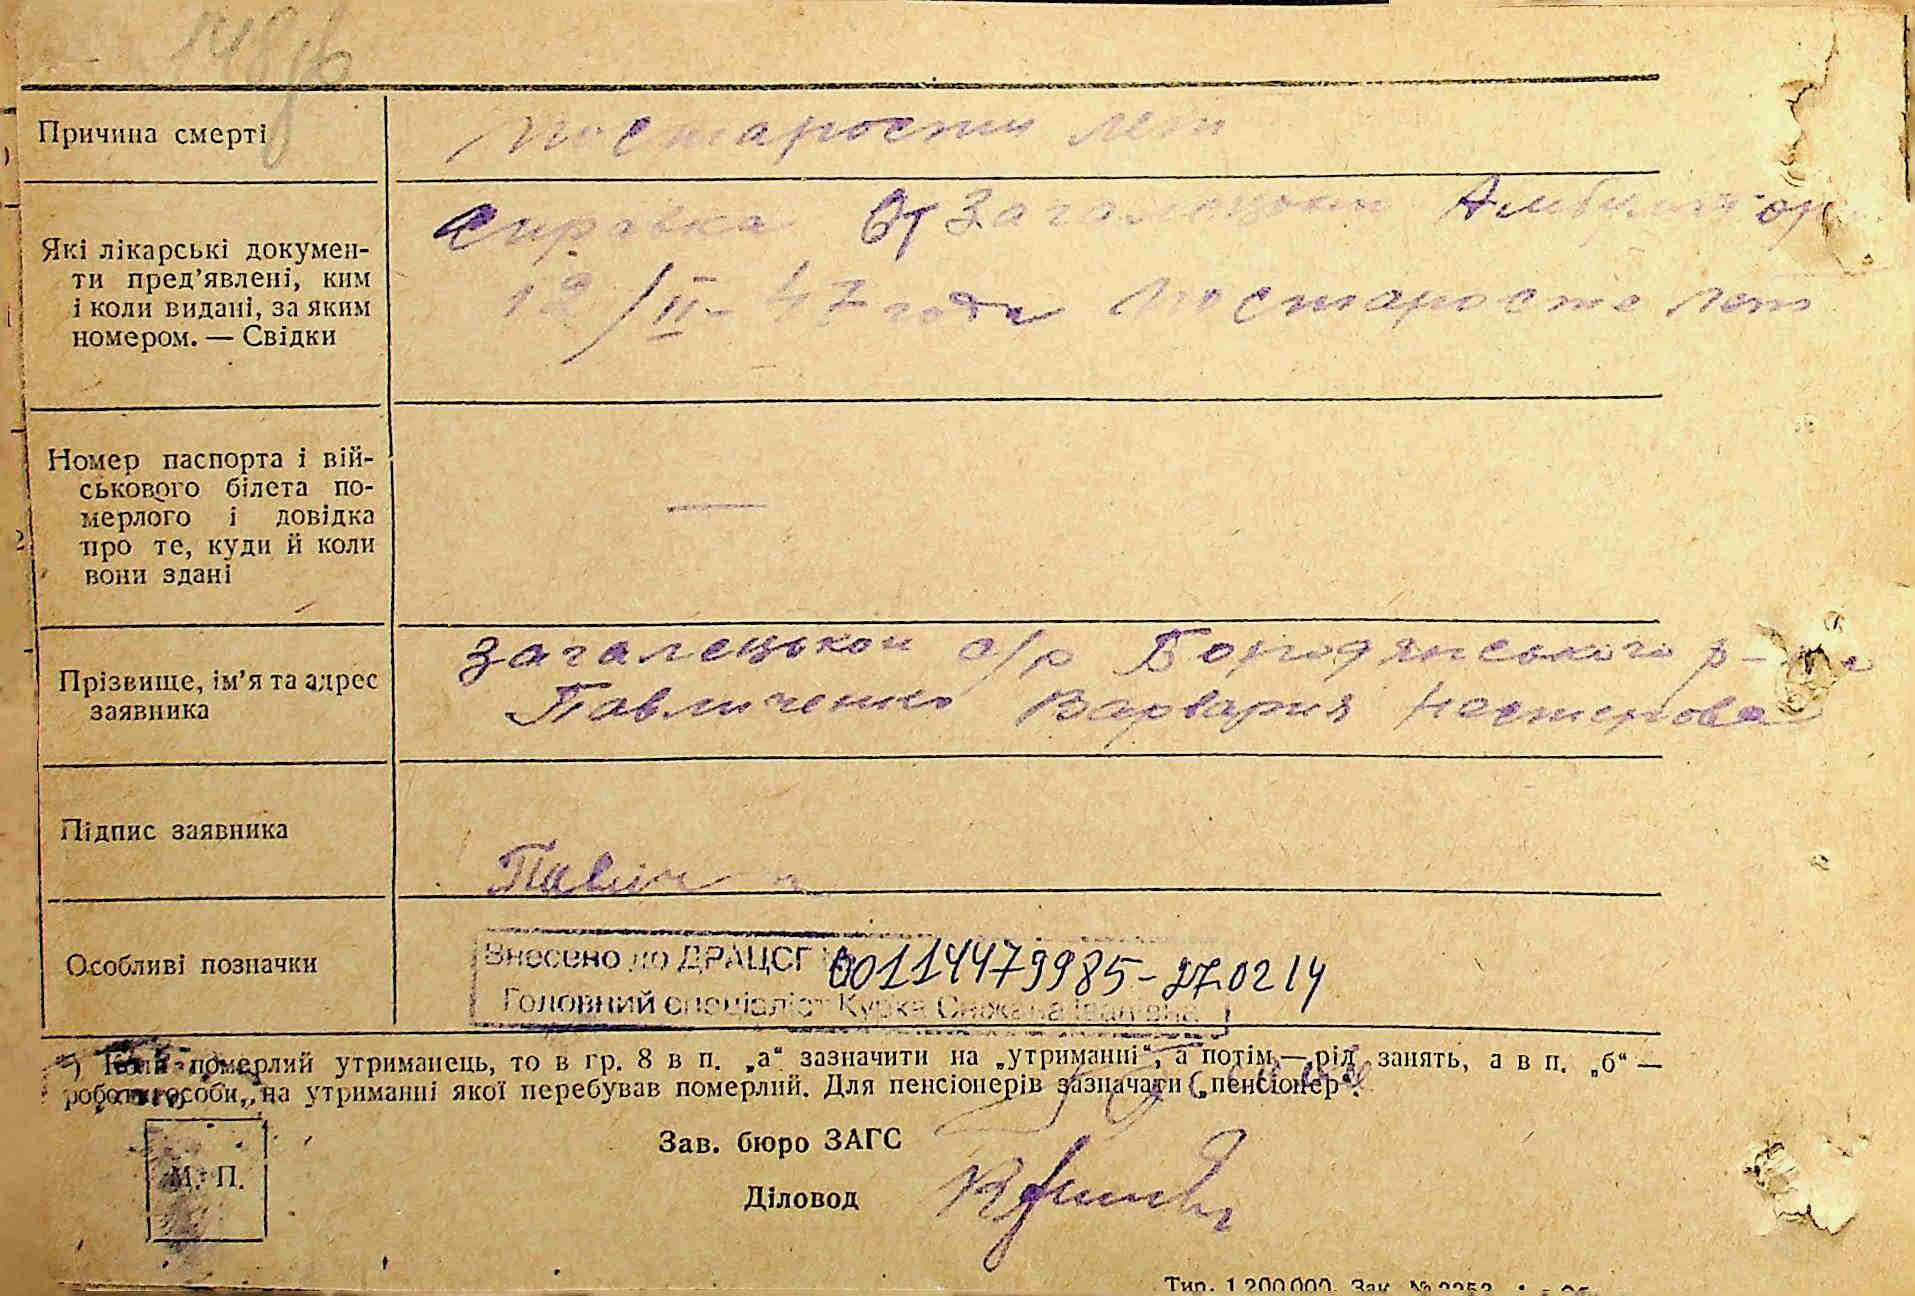 Причина смерті
По старости лет
Які лікарські докумен-
ти пред'явлені, ким
і коли видані, за яким
номером. — Свідки
Справка От
12/II-47 года По старосте лет
Номер паспорта і вій-
ськового білета по-
мерлого і довідка
про те, куди й коли
вони здані
—
Прізвище, ім'я та адрес
заявника
Загалецькои с/р Бородянського р-
Павличенко Варвария Нестерова
Підпис заявника
Особливі позначки
Внесено до ДРАЦСГ 00114479985-27.02 14
Головний спеціаліст Курка Сніжана Іванівна
*) Коли померлий утриманець, то в гр. 8 в п. „а“ зазначити на „утриманні“, а потім — рід занять, а в п. „б“ —
роботи особи, на утриманні якої перебував померлий. Для пенсіонерів зазначати „пенсіонер“.
Зав. бюро ЗАГС
М. П.
Діловод
Тир. 1.200.000. Зак. №